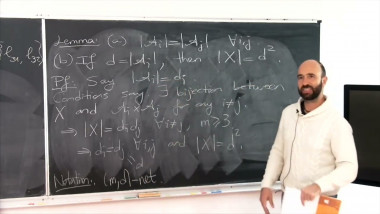 Lemma: (a) |A_i|=|A_j| ∀i,j
(b) If d=|A_i|, then |X|=d².
Pf: Say |A_i|=d_i
Conditions say ∃ bijection between
X and A_i×A_j for any i≠j.
⇒ |X|=d_i d_j ∀i≠j, m≥3
⇒ d_i=d_j ∀i,j and |X|=d².
Notation: (m,d)-net